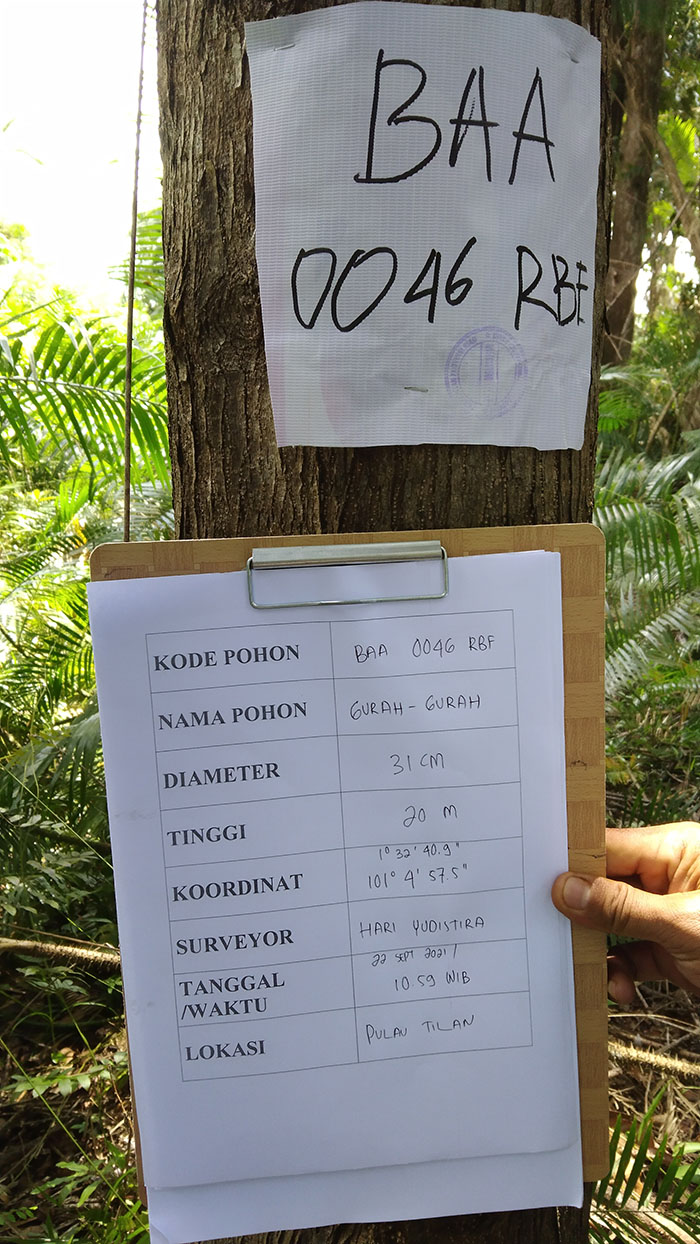 BAA
0046 RBF
KODE POHON BAA 0046 RBF
NAMA POHON GURAH - GURAH
DIAMETER 31 CM
TINGGI 20 M
KOORDINAT 1° 32' 40.9"
101° 4' 57.5"
SURVEYOR HARI YUDISTIRA
TANGGAL 22 SEPT 2021 /
/WAKTU 10.59 WIB
LOKASI PULAU TILAN